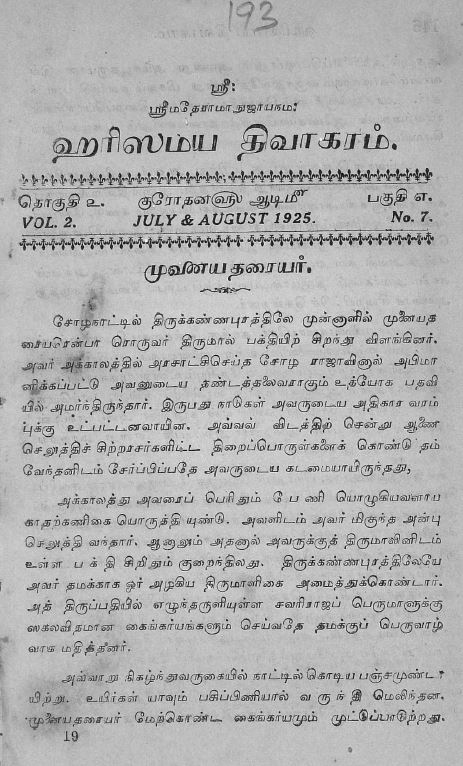 193
ஸ்ரீ:
ஸ்ரீமதேராமாநுஜாயநம:
ஹரிஸமய திவாகரம்.
தொகுதி உ. குரோதனஹு ஆடிமீ பகுதி எ.
VOL. 2. JULY & AUGUST 1925. No. 7.
முனையதரையர்.
சோழநாட்டில் திருக்கண்ணபுரத்திலே முன்னாளில் முனையத
ரையரென்பா ரொருவர் திருமால் பக்தியிற் சிறந்து விளங்கினர்.
அவர் அக்காலத்தில் அரசாட்சிசெய்த சோழ ராஜாவினால் அபிமா
னிக்கப்பட்டு அவனுடைய தண்டத்தலைவராகும் உத்யோக பதவி
யில் அமர்ந்திருந்தார். இருபது நாடுகள் அவருடைய அதிகார வரம்
புக்கு உட்பட்டனவாயின. அவ்வவ் விடத்திற் சென்று ஆணை
செலுத்திச் சிற்றரசர்களிட்ட திறைப்பொருள்களைக் கொண்டு தம்
வேந்தனிடம் சேர்ப்பிப்பதே அவருடைய கடமையாயிருந்தது,
அக்காலத்து அவரைப் பெரிதும் பே ணி யொழுகியவளாய
காதற்கணிகை யொருத்தி யுண்டு. அவளிடம் அவர் மிகுந்த அன்பு
செலுத்தி வந்தார். ஆனாலும் அதனால் அவருக்குத் திருமாலினிடம்
உள்ள ப க் தி சிறிதும் குறைந்திலது. திருக்கண்ணபுரத்திலேயே
அவர் தமக்காக ஓர் அழகிய திருமாளிகை அமைத்துக்கொண்டார்.
அத் திருப்பதியில் எழுந்தருளியுள்ள சவுரிராஜப் பெருமாளுக்கு
ஸகலவிதமான கைங்கர்யங்களும் செய்வதே தமக்குப் பெருவாழ்
வாக மதித்தனர்.
அவ்வாறு நிகழ்ந்துவருகையில் நாட்டில் கொடிய பஞ்சமுண்டா
யிற்று. உயிர்கள் யாவும் பசிப்பிணியால் வ ரு ந் தி மெலிந்தன.
முனையதரையர் மேற்கொண்ட கைங்கர்யமும் முட்டுப்பாடுற்றது.
19